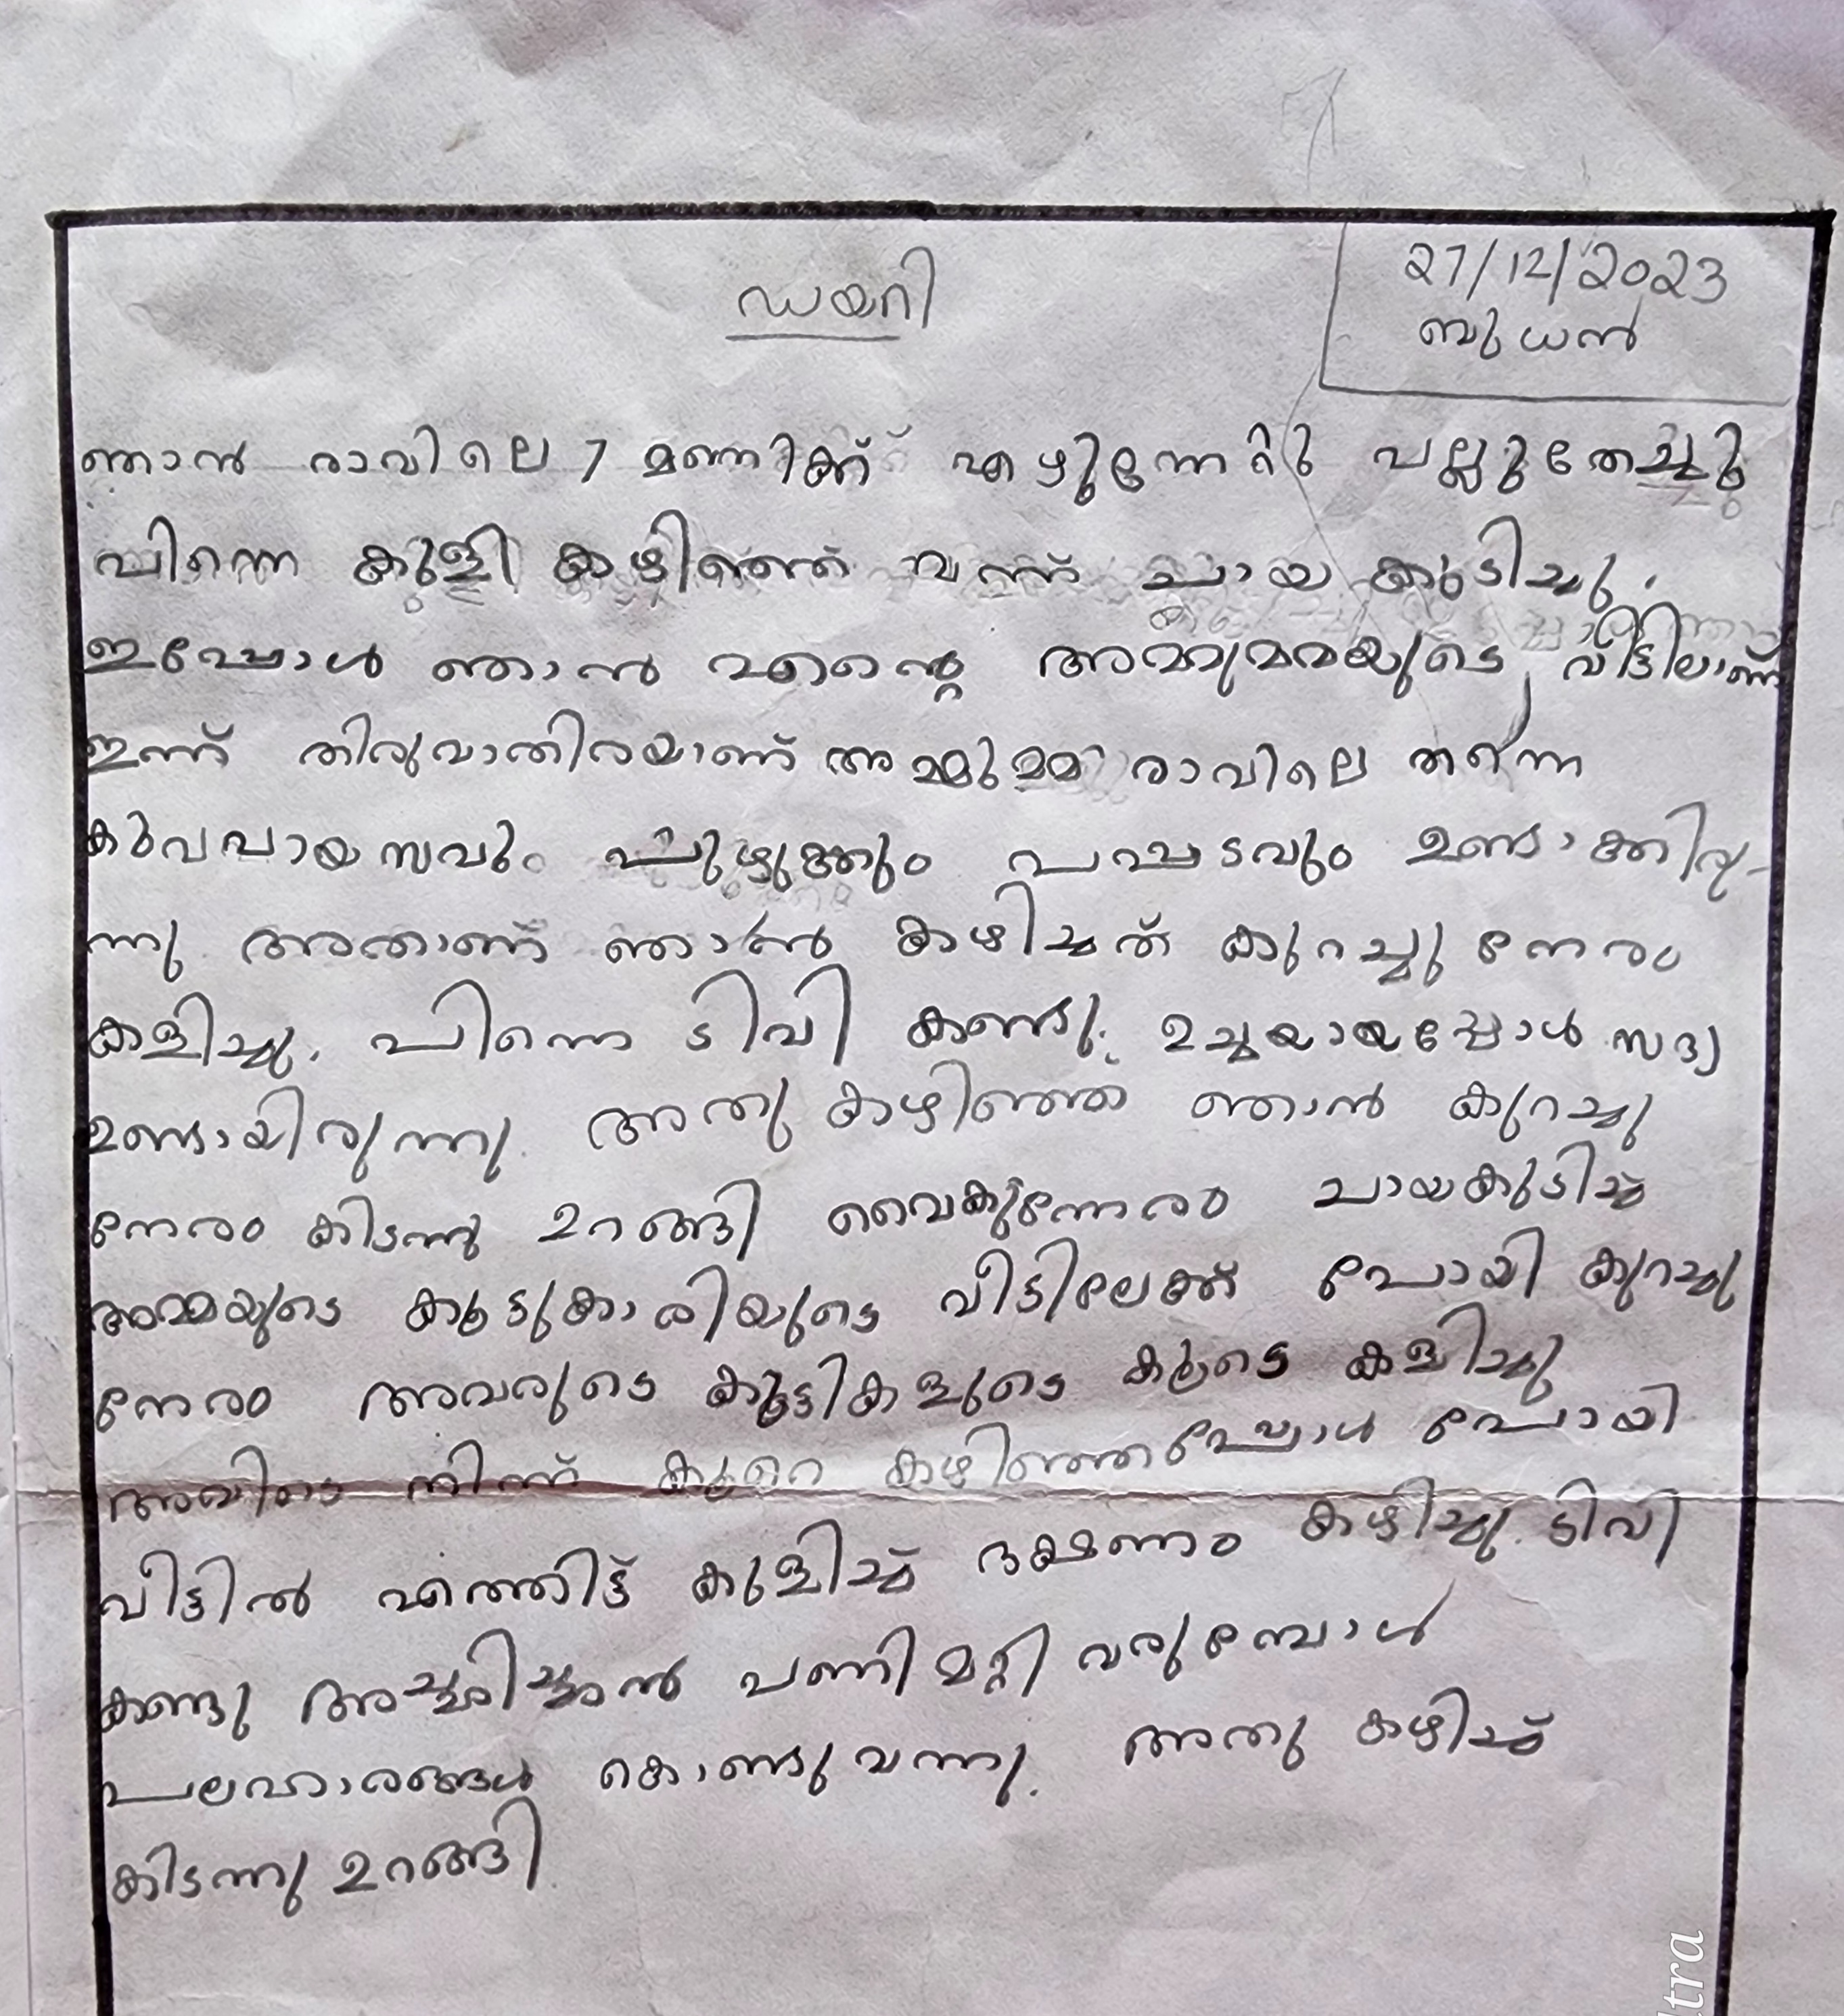 ഡയറി
27/12/2023
ബുധൻ
ഞാൻ രാവിലെ 7 മണിക്ക് എഴുന്നേറ്റു പല്ലുതേച്ചു
പിന്നെ കുളി കഴിഞ്ഞ് വന്ന് ചായ കുടിച്ചു.
ഇപ്പോൾ ഞാൻ എന്റെ അമ്മുമ്മയുടെ വീട്ടിലാണ്
ഇന്ന് തിരുവാതിരയാണ് അമ്മുമ്മ രാവിലെ തന്നെ
കുവപായസവും പുഴുക്കും പപ്പടവും ഉണ്ടാക്കിരു-
ന്നു അതാണ് ഞാൻ കഴിച്ചത് കുറച്ചു നേരം
കളിച്ചു. പിന്നെ ടിവി കണ്ടു. ഉച്ചയായപ്പോൾ സദ്യ
ഉണ്ടായിരുന്നു. അതു കഴിഞ്ഞ് ഞാൻ കുറച്ചു
നേരം കിടന്നു ഉറങ്ങി വൈകുന്നേരം ചായകുടിച്ച്
അമ്മയുടെ കൂട്ടുകാരിയുടെ വീട്ടിലേക്ക് പോയി കുറച്ചു
നേരം അവരുടെ കുട്ടികളുടെ കൂടെ കളിച്ചു
അവിടെ നിന്ന് കുറെ കഴിഞ്ഞപ്പോൾ പോയി
വീട്ടിൽ എത്തിട്ട് കുളിച്ച് ഭക്ഷണം കഴിച്ചു. ടിവി
കണ്ടു അച്ചിച്ചൻ പണി മറ്റി വരുമ്പോൾ
പലഹാരങ്ങൾ കൊണ്ടുവന്നു. അതു കഴിച്ച്
കിടന്നു ഉറങ്ങി.